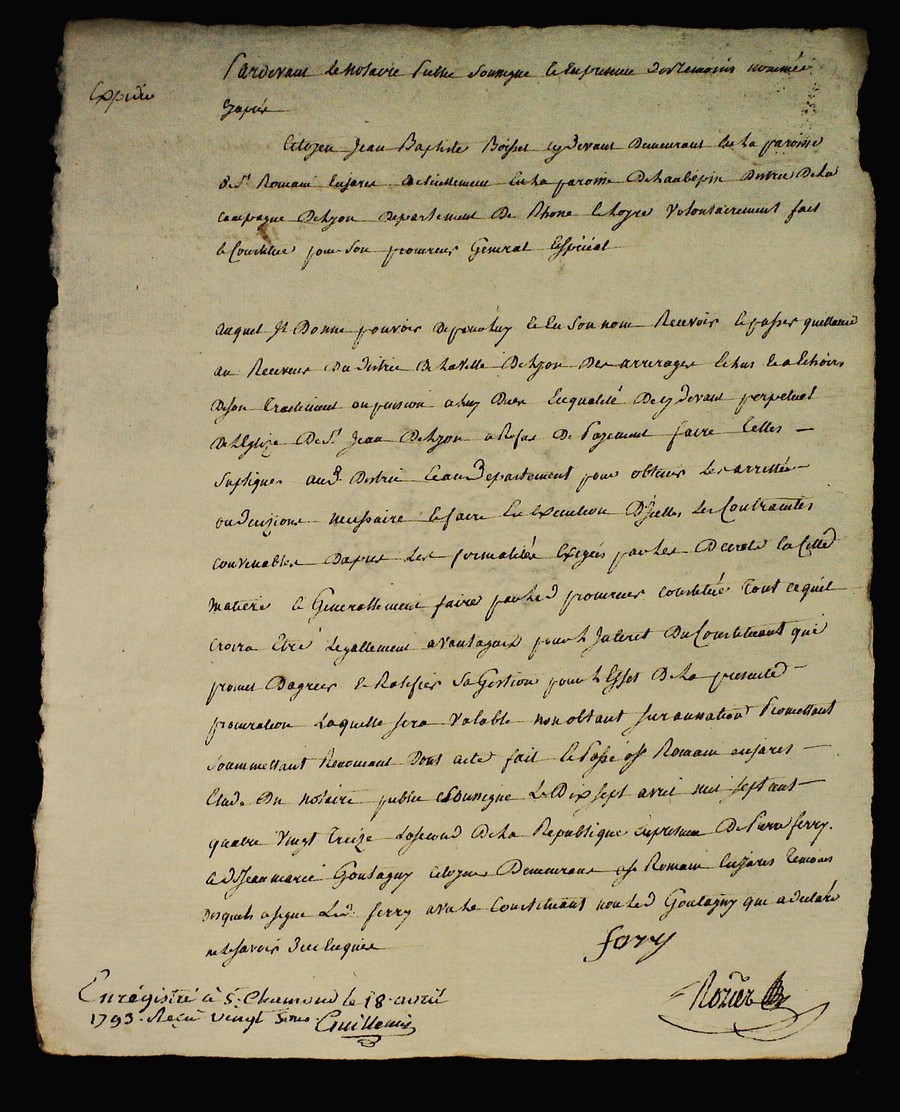 Expédié
Pardevant le notaire Public soussigné et en presence des temoins nommés
yaprès
Citoyen Jean Baptiste Boisset cy devant demeurant en la paroisse
de St Romain en jares actuellement en la paroisse de hauterivoire district de la
campagne de Lyon departement de Rhone et Loyre volontairement fait
et constitué pour son procureur General Especial
auquel il donne pouvoir de pour luy et en son nom recevoir et passer quittance
au Receveur du district de la ville de Lyon des arrerages echus et a echoirs
de son traitement ou pension a luy dues en qualité de cy devant perpetuel
de l'Eglize de St Jean de Lyon a Refus de Payement faire telles
supliques aud. district et aud. departement pour obtenir les arrettés
ou decizions necessaire et faire en execution d'icelles les contraintes
convenables dapres les formalités exigées par les decrets en cette
matiere et Generallement faire par led procureur constitué tout ce quil
croira etre legallement avantageux pour l'interet du constituant qui
promet dagreer et Ratifier sa gestion pour l'effet de la presente
procuration laquelle sera valable non obtant surannation Promettant
soummettant Renoncant dont acte fait et Passé a St Romain en jares
etude du notaire public soussigné le dix sept avril mil sept cent
quatre vingt treize lasecond de la Republique en presence de Pierre ferry
et de Jean marie Goutagny citoyens demeurans a St Romain en jares temoins
desquels a signé led. ferry avec le constituant non led Goutagny qui a declaré
ne le savoir de ce enquis
ferry
Rozier
Enrégistré à St. Chamond le 18. avril
1793. Reçu vingt sous Guillemin